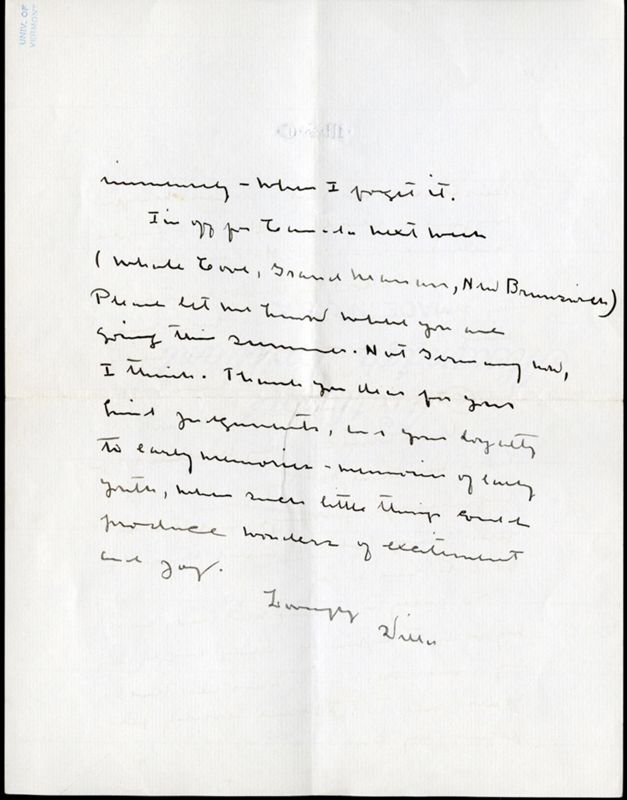 UNIV. OF
VERMONT
immensely - when I forget it.
I'm off for Canada next week
(Whale Cove, Grand Manan, New Brunswick)
Please let me know where you are
going this summer. Not Germany now,
I think. Thank you dear for your
kind judgments, and your loyalty
to early memories - memories of early
youth, when such little things could
produce wonders of excitement
and joy.
Lovingly
Willa